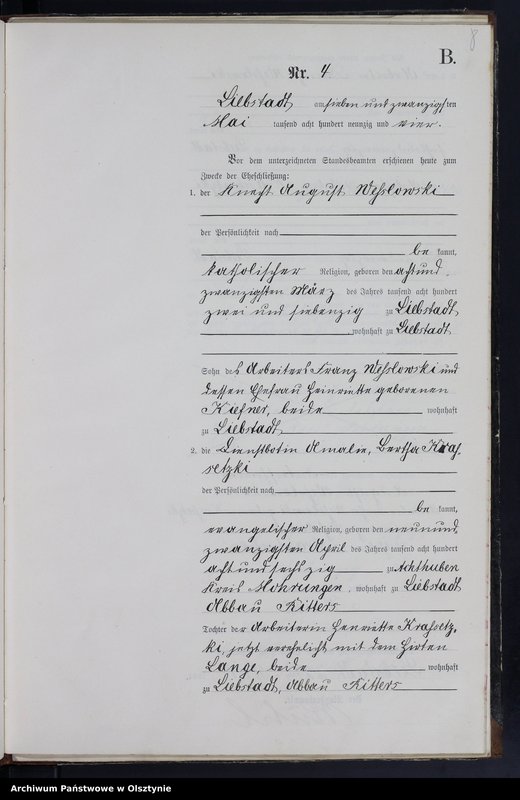 8
B.
Nr. 4
Liebstadt am sieben und zwanzigsten
Mai tausend acht hundert neunzig und vier.
Vor dem unterzeichneten Standesbeamten erschienen heute zum
Zwecke der Eheschließung:
1. der Knecht August Wesslowski
der Persönlichkeit nach
be kannt,
katholischer Religion, geboren den acht und
zwanzigsten März des Jahres tausend acht hundert
zwei und siebenzig zu Liebstadt
wohnhaft zu Liebstadt
Sohn des Arbeiters Franz Wesslowski und
dessen Ehefrau Heinriette geborenen
Kiefner, beide wohnhaft
zu Liebstadt
2. die Dienstbotin Amalie, Bertha Kras
setzki
der Persönlichkeit nach
be kannt,
evangelischer Religion, geboren den neunund
zwanzigsten April des Jahres tausend acht hundert
acht und sechszig zu Achthuben
Kreis Mohrungen, wohnhaft zu Liebstadt
Abbau Ritters
Tochter der Arbeiterin Henriette Krassetz,
ki, jetzt verehelicht mit dem Hirten
Lange, beide wohnhaft
zu Liebstadt, Abbau Ritters
Archiwum Państwowe w Olsztynie